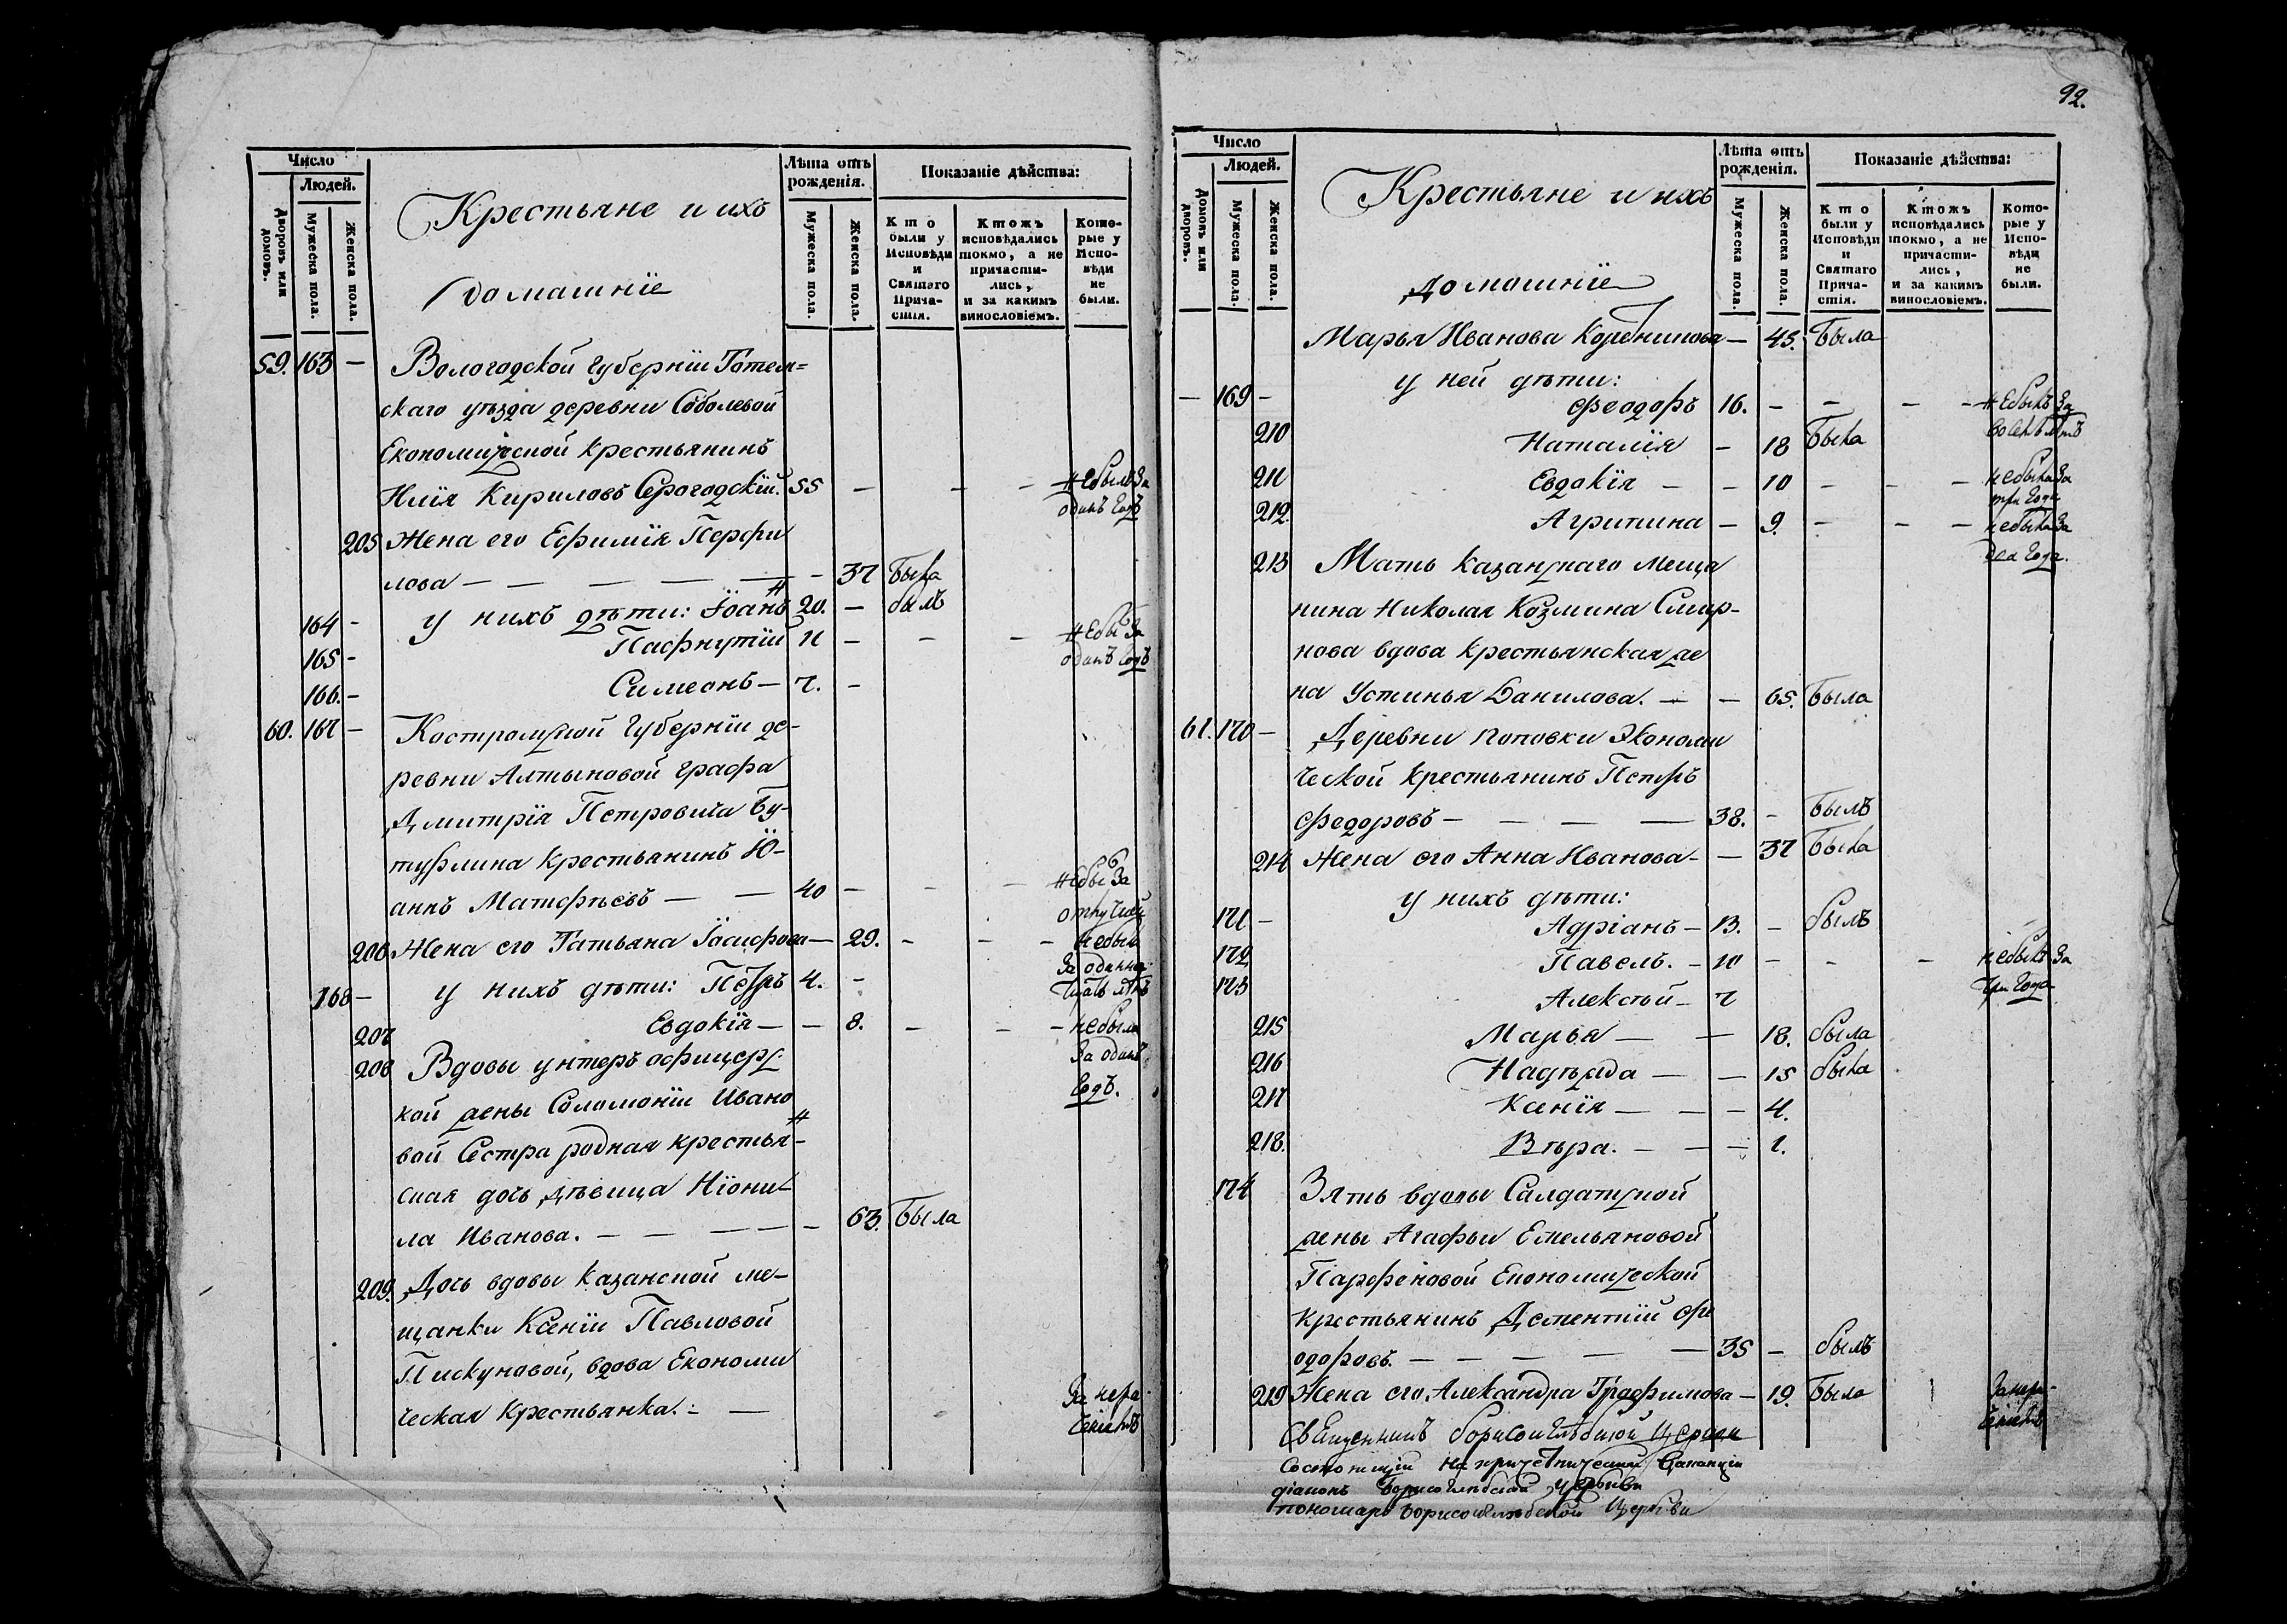 Число
Людей.
Дворовъ или домовъ.
Мужеска пола.
Женска пола.
Крестьяне и ихъ
домашніе
Лѣта отъ рожденія.
Мужеска пола.
Женска пола.
Показаніе дѣйства:
Кто были у Исповѣди и Святаго Прича-стія.
Ктожъ исповѣдались токмо, а не причасти-лись, и за какимъ винословіемъ.
Кото-рые у Испо-вѣди не были.
59. 163 — Вологодской Губерніи Тотем=
скаго уѣзда деревни Соболевой
Економической крестьянинъ
Илія Кириловъ Серогодскій. 55 — — — Небылъ за
одинъ годъ
205 Жена его Ефимія Перфи
лова — — — — — 37 Была
164 — у нихъ дѣти: Іоаннъ 20. — былъ
165 — Пафнутій 11 — — — Небы За
одинъ годъ
166. — Симеонъ — 7. —
60. 167 — Костромской Губерніи де-
ревни Алтыновой графа
Дмитрія Петровича Бу-
турлина крестьянинъ Іо-
аннъ Матфѣевъ — — 40 — — — Небы За
отлучкой
206 Жена его Татьяна Іосифова — 29. — — — небыла
За одинна
тцать лѣтъ
168 — у нихъ дѣти: Петръ 4. —
207 Евдокія — — 8. — — — небыла
За одинъ
годъ.
208 Вдовы унтеръ офицерс
кой жены Соломоніи Ивано
вой Сестра родная крестьян-
ская дочь дѣвица Ніони-
ла Иванова. — — — — — 63. Была
209. Дочь вдовы Казанской ме-
щанки Ксеніи Павловой
Пискуновой, вдова Економи
ческая Крестьянка: —
За нера-
ченіемъ
92.
Число
Людей.
Домовъ или дворовъ.
Мужеска пола.
Женска пола.
Крестьяне и ихъ
домашніе
Лѣта отъ рожденія.
Мужеска пола.
Женска пола.
Показаніе дѣйства:
Кто были у Исповѣди и Святаго Прича-стія.
Ктожъ исповѣдались токмо, а не причасти-лись, и за какимъ винословіемъ.
Кото-рые у Испо-вѣди не были.
Марья Иванова — 45. Была
у ней дѣти:
— 169 — Феодоръ 16. — — — — Небылъ За
восемь лѣтъ
210 Наталія — 18 Была
211 Евдокія — — 10 — — — небыла За
три года
212. Агрипина — 9. — — — небыла За
два года.
213 Мать Казанскаго меща
нина Николая Козмина Смир-
нова вдова крестьянская же
на Устинья Данилова. — — 65. Была
61. 170 — Деревни Поповки Экономи
ческой крестьянинъ Петръ
Федоровъ — — — — 38. — Былъ
214 Жена его Анна Иванова — — 37 Была
у нихъ дѣти:
171 — Адріанъ — 13. — былъ
172 Павелъ. — 10 — — — небылъ За
три года
173 Алексѣй — 7
215 Марья — — 18. была
216 Надѣжда — — 15 была
217 Ксенія — — — 4.
218. Вѣра. — — — 1.
174 Зять вдовы Салдатской
жены Агафьи Емельяновой
Парфеновой Економической
крестьянинъ Дементій Фе
одоровъ. — — — — — 35 — былъ
219 Жена его Александра Трофимова — 19. Была
За нера-
ченіемъ
Священникъ Борисоглѣбской Церкви
Состоящій на причетнической Ваканціи
діаконъ Борисоглѣбской церькви
пономарь Борисоглѣбской Церкви